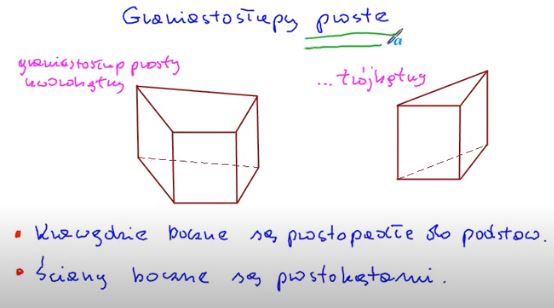 Graniastosłupy proste
graniastosłup prosty
czworokątny
...trójkątny
• Krawędzie boczne są prostopadłe do podstaw.
• Ściany boczne są prostokątami.